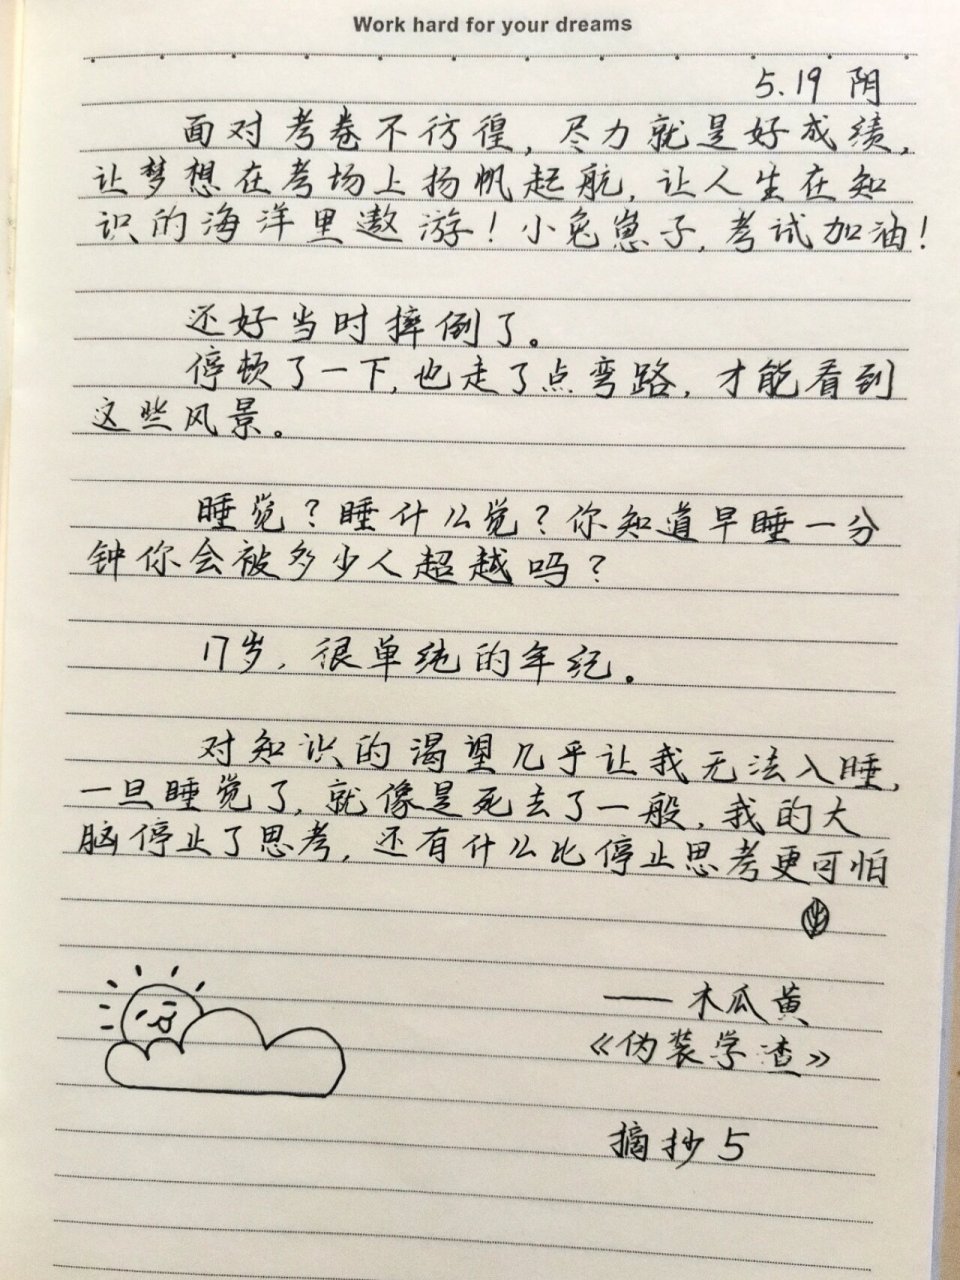 Work hard for your dreams
5.19 阴
面对考卷不彷徨，尽力就是好成绩，
让梦想在考场上扬帆起航，让人生在知
识的海洋里遨游！小兔崽子，考试加油！
还好当时摔倒了。
停顿了一下，也走了点弯路，才能看到
这些风景。
睡觉？睡什么觉？你知道早睡一分
钟你会被多少人超越吗？
17岁，很单纯的年纪。
对知识的渴望几乎让我无法入睡，
一旦睡觉了，就像是死去了一般，我的大
脑停止了思考，还有什么比停止思考更可怕
——木瓜黄
《伪装学渣》
摘抄5